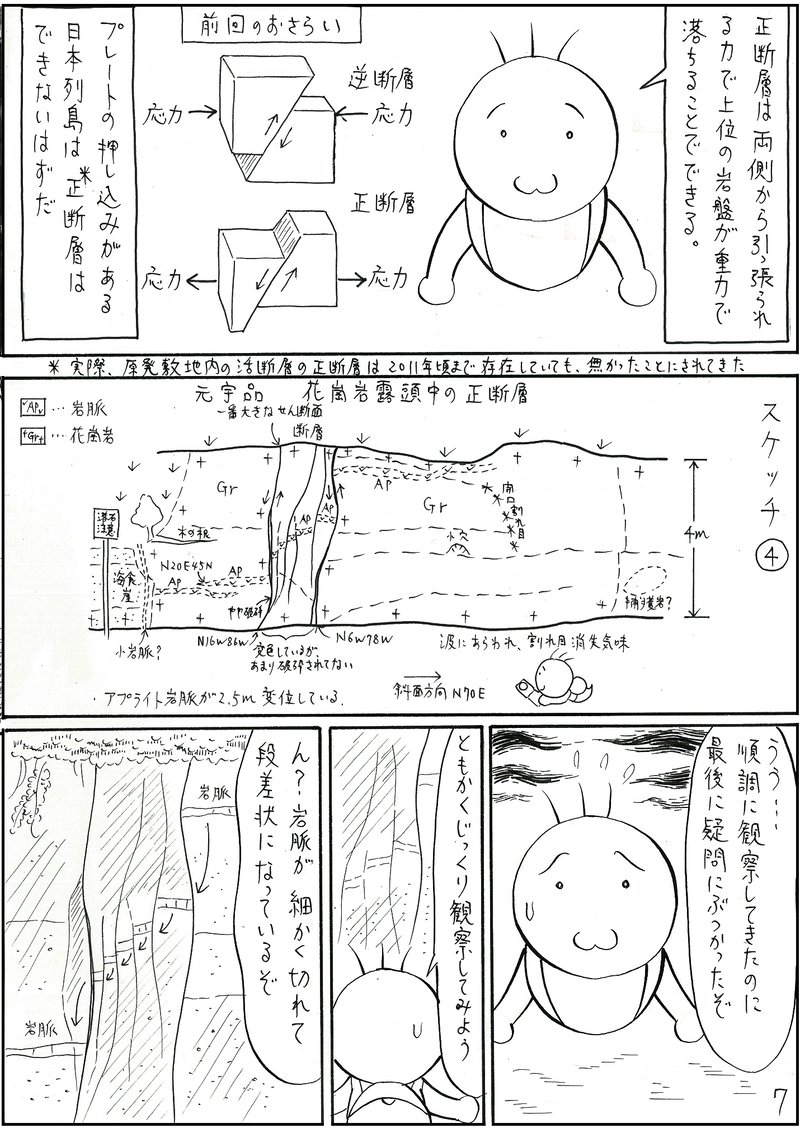 正断層は両側から引っ張られ
る力で上位の岩盤が重力で
落ちることでできる。
前回のおさらい
逆断層
応力
応力
正断層
応力
応力
プレートの押し込みがある
日本列島は※正断層は
できないはずだ
※実際、原発敷地内の活断層の正断層は2011年頃まで存在していても、無かったことにされてきた
スケッチ④
元宇品 花崗岩露頭中の正断層
Ap…岩脈
+Gr+…花崗岩
一番大きなせん断面
断層
Gr
Ap
Gr
開口割れ目
Ap
Ap
落石注意
木の根
穴
4m
N20E45N
海食崖
Ap
Ap
やや破砕
捕獲岩?
小岩脈?
N16W86W
変色しているが、
あまり破砕されてない
N6W78W
波にあらわれ、割れ目消失気味
斜面方向N70E
・アプライト岩脈が2.5m変位している.
うう…
順調に観察してきたのに
最後に疑問にぶつかったぞ
ともかくじっくり観察してみよう
ん?岩脈が細かく切れて
段差状になっているぞ
岩脈
岩脈
7